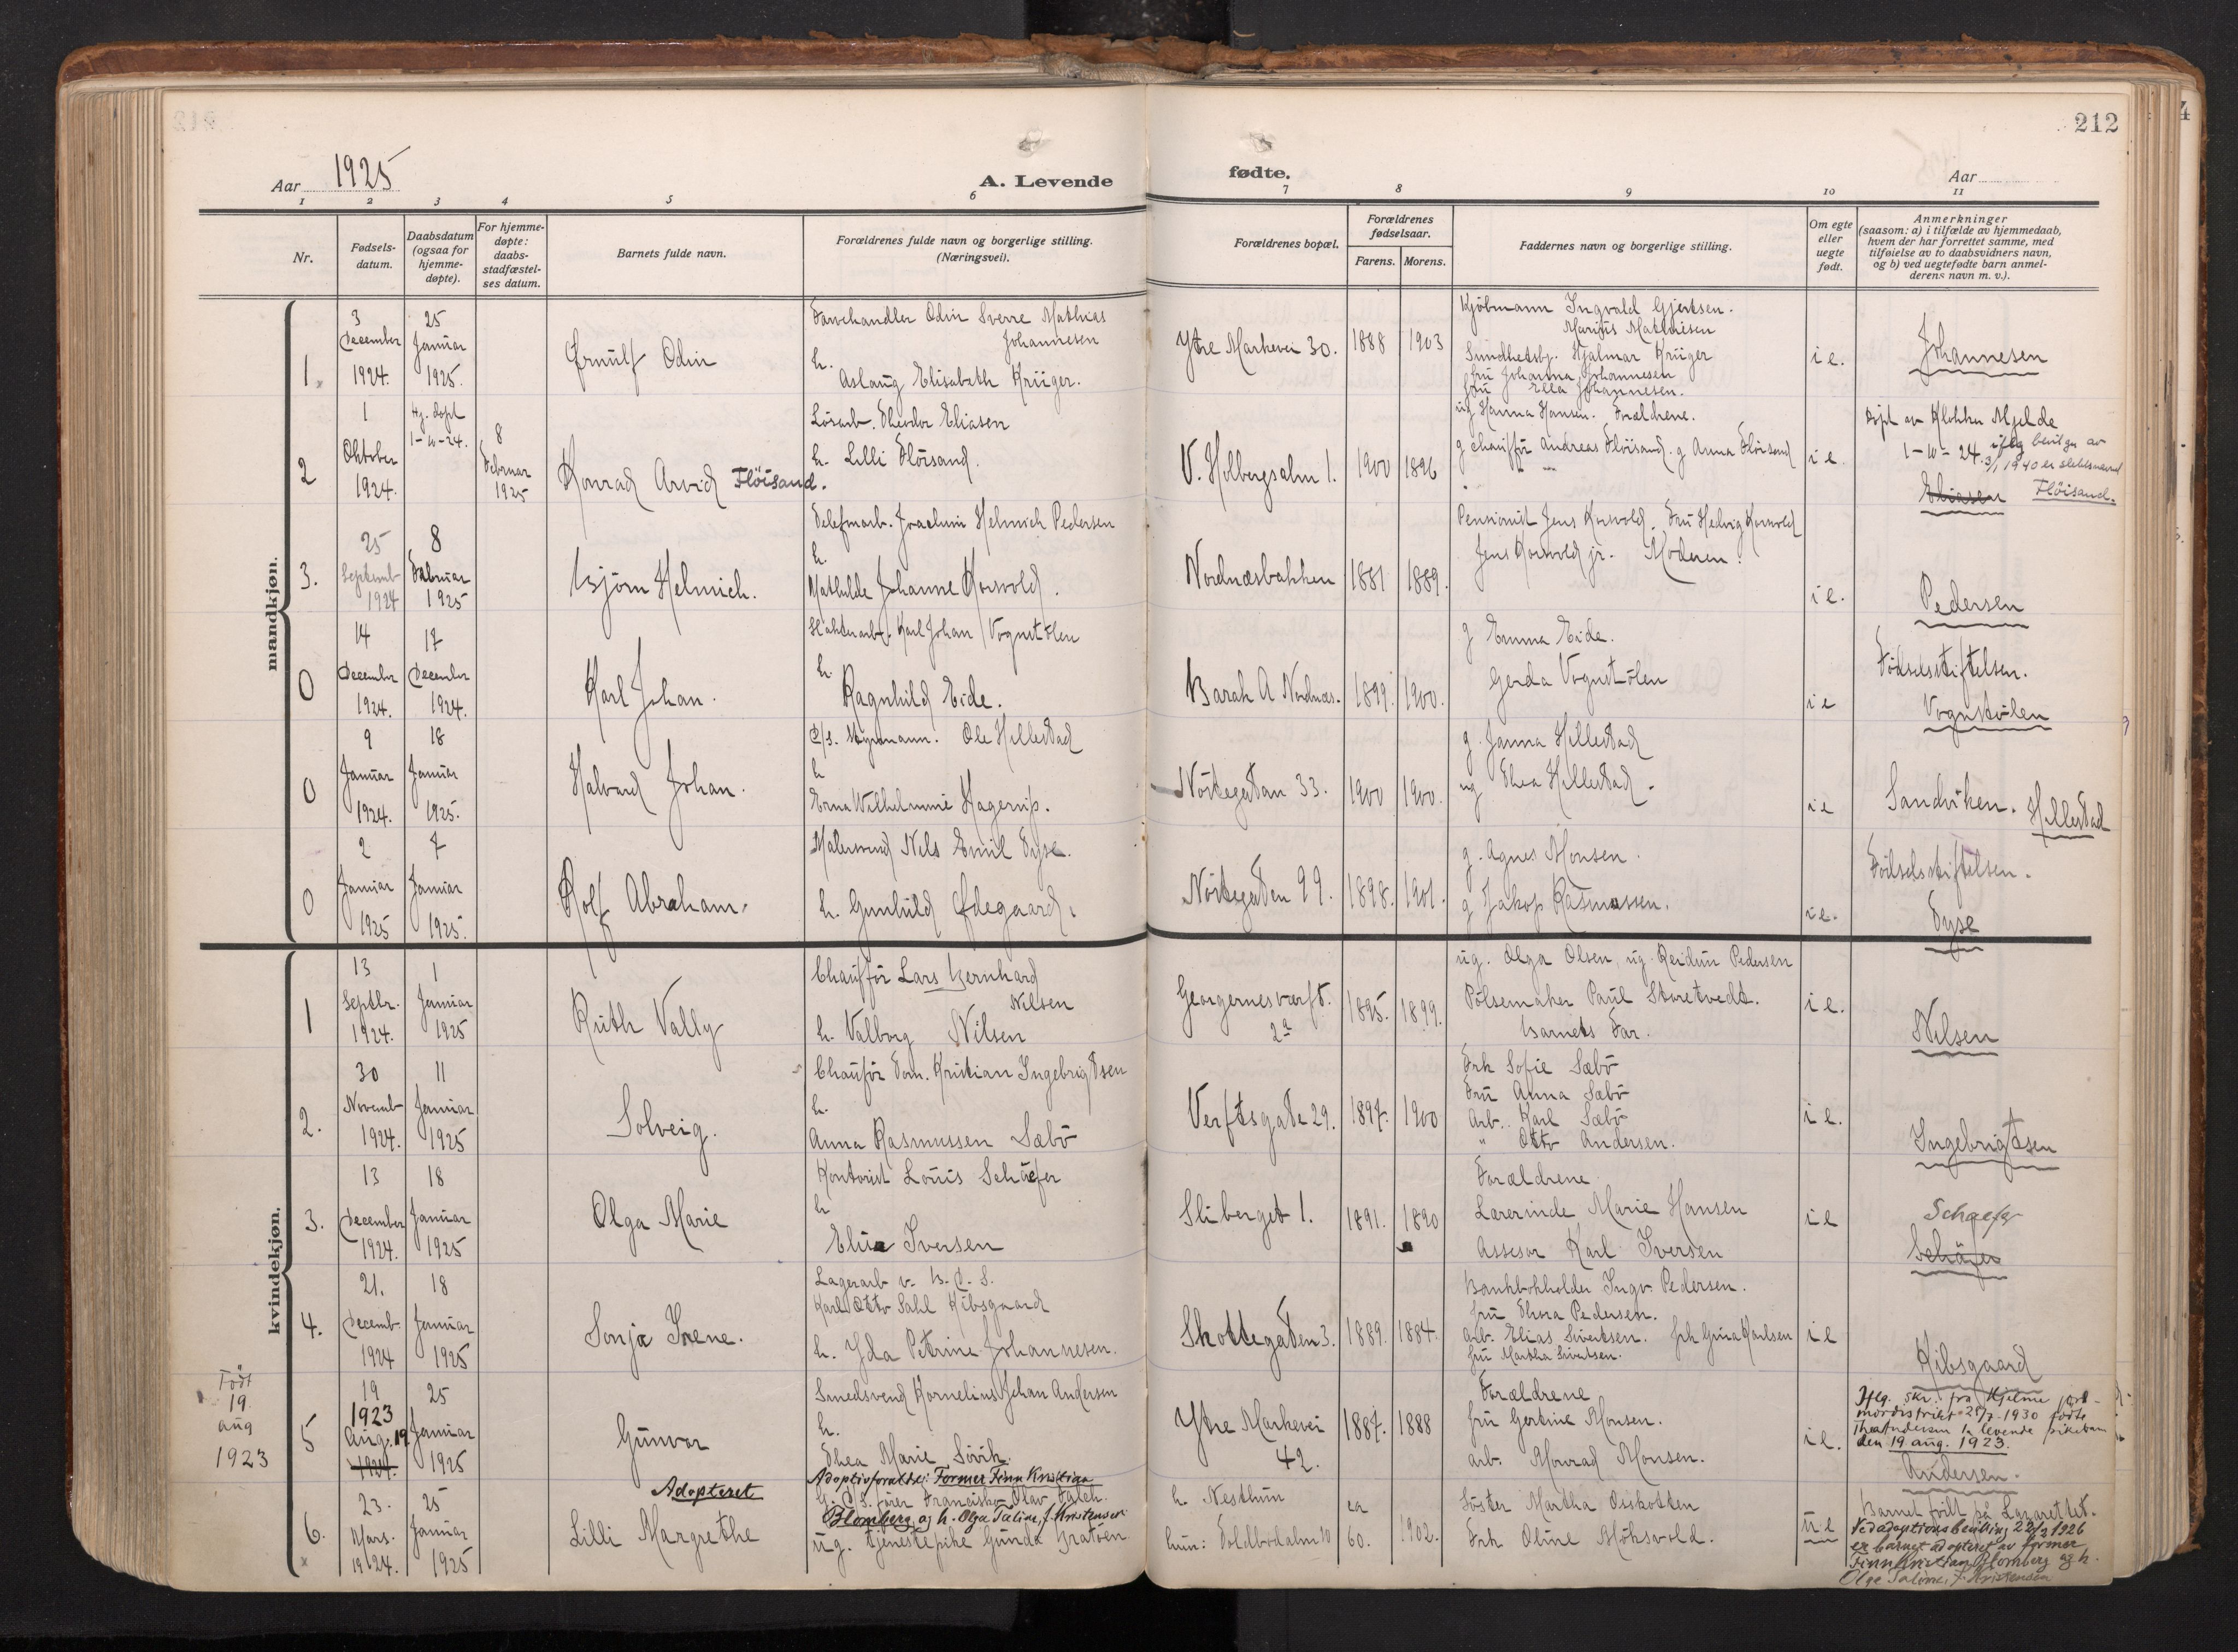 212
Aar 1925
A. Levende
fødte.
Aar
1 2 3 4 5 6 7 8 9 10 11
Nr.
Fødsels-
datum.
Daabsdatum
(ogsaa for
hjemme-
døpte).
For hjemme-
døpte:
daabs-
stadfæstel-
ses datum.
Barnets fulde navn.
Forældrenes fulde navn og borgerlige stilling.
(Næringsvei).
Forældrenes bopæl.
Forældrenes
fødselsaar.
Farens. Morens.
Faddernes navn og borgerlige stilling.
Om egte
eller
uegte
født.
Anmerkninger
(saasom: a) i tilfælde av hjemmedaab,
hvem der har forrettet samme, med
tilføielse av to daabsvidners navn,
og b) ved uegtefødte barn anmel-
derens navn m. v.).
mandkjøn.
1.
3
December
1924.
25
Januar
1925.
Ørnulf Odin
Farvehandler Odin Sverre Mathias
Johannesen
h.
Aslaug Elisabeth Krüger.
Ytre Markevei 30.
1888
1903
Kjøbmann Ingvald Gjertsen.
Marius Mathiesen
Sundhetsbj. Hjalmar Krüger
fru Johanna Johannesen
fru Ella Johannesen.
i e.
Johannesen
2
1
Oktober
1924.
Hj. døpt
1-10-24.
8
Februar
1925
Konrad Arvid Fløisand.
Løsarb. Theodor Eliasen
h. Lilli Fløisand.
V. Holbergsalm 1.
1900
1896
ug Hanna Hansen. Forældrene.
g chauffør Andreas Fløisand. g Anna Fløisand
i e.
Døpt av Klokker Mjelde
1-10-24.
iflg bevilgn av
3/1 1940 er slektsnavnet
Eliasen Fløisand.
3.
25
Septemb
1924
8
Februar
1925
Bjørn Helmich.
Telefonarb. Joachim Helmich Pedersen
h.
Mathilde Johanne Korsvold.
Nordnæsbakken
1881
1889.
Pensionist Jens Korsvold. Fru Hedvig Korsvold
Jens Korsvold jr. Moderen.
i e.
Pedersen
0
14
December
1924.
17
December
1924.
Karl Johan.
Slakterarb. Karl Johan Vognstølen
h.
Ragnhild Eide.
Barak A Nordnæs.
1899.
1900.
g Emma Eide.
Gerda Vognstølen
i e
Fødselsstiftelsen.
Vognstølen
0
9
Januar
1924.
18
Januar
1925.
Halvard Johan.
D/s. Styrmann. Ole Hillestad
h
Erna Wilhelmine Hagerup.
Nøstegaten 33.
1900
1900.
g. Janna Hillestad
ug Thea Hillestad.
i e
Sandviken. Hillestad
0
2
Januar
1925
7
Januar
1925.
Rolf Abraham.
Malersvend Nils Emil Tyse.
h. Gunhild Ødegaard.
Nøstegaten 99.
1898.
1901.
g. Agnes Monsen.
g Jakop Rasmussen.
i e.
Fødselsstiftelsen.
Tyse
kvindekjøn.
1
13
Septbr.
1924.
1
Januar
1925
Ruth Vally
Chauffør Lars Bernhard
Nilsen
h. Valborg Nilsen
Georgernes verft.
2a
1895.
1899.
ug. Olga Olsen, ug. Reidun Pedersen
Pølsemaker Paul Storetvedt.
Barnets Far.
i e.
Nilsen
2.
30
Novemb
1924.
11
Januar
1925
Solveig.
Chauffør Tom. Kristian Ingebrigtsen
h.
Anna Rasmussen Sæbø
Verftsgate 29.
1897.
1900
Frk Sofie Sæbø
Fru Anna Sæbø
Arb. Karl Sæbø
" Otto Andersen.
i e.
Ingebrigtsen
3.
13
December
1924.
18
Januar
1925
Olga Marie
Kontorist Louis Schäefer
h
Elise Iversen
Sliberget 1.
1891.
1890
Forældrene
Lærerinde Marie Hansen
Assesor Karl Iversen
i e
Schaefer
Schäfer
4.
21.
Decemb.
1924
18
Januar
1925
Sonja Irene.
Lagerarb v. B. D. S.
Karl Otto Sahl Kibsgaard
h. Yda Petrine Johannesen.
Skottegaten 3.
1889.
1884.
Bankbokholder Ingv. Pedersen.
fru Thora Pedersen.
arb. Elias Sivertsen. frk Grina Karlsen
fru Martha Sivertsen.
i e
Kibsgaard
Født
19
aug
1923
5
19
1923
Aug. 19
1924.
25
Januar
1925
Gunvor
Smedsvend Kornelius Johan Andersen
h.
Thea Marie Sørvik.
Ytre Markevei
42.
1887.
1888
Forældrene
fru Gertine Monsen.
arb. Monrad Monsen.
i e.
Iflg. skr. fra Hjelme jord-
mordistrikt 25/7. 1930 fødte
Thea Andersen 1 levende pikebarn
den 19 aug. 1923.
Andersen.
6.
23.
Mars.
1924.
25
Januar
1925
Adopteret
Lilli Margrethe
Adoptivforældre: Former Finn Kristian
Blomberg, og h. Olga Taline, f. Kristensen
g. D/S. fører Francisko Olav Falch.
ug. tjenestepike Gunda Bratøen.
h. Nesttun
hun: Toldbodalm 10
ca
60.
1902.
Søster Martha Osskotten
Frk Oline Mohsvold.
u e
Barnet født på Lazarettet.
Ved adoptionsbevilling 22/2 1926
er barnet adopteret av former
Finn Kristian Blomberg og h.
Olga Taline, f. Kristensen